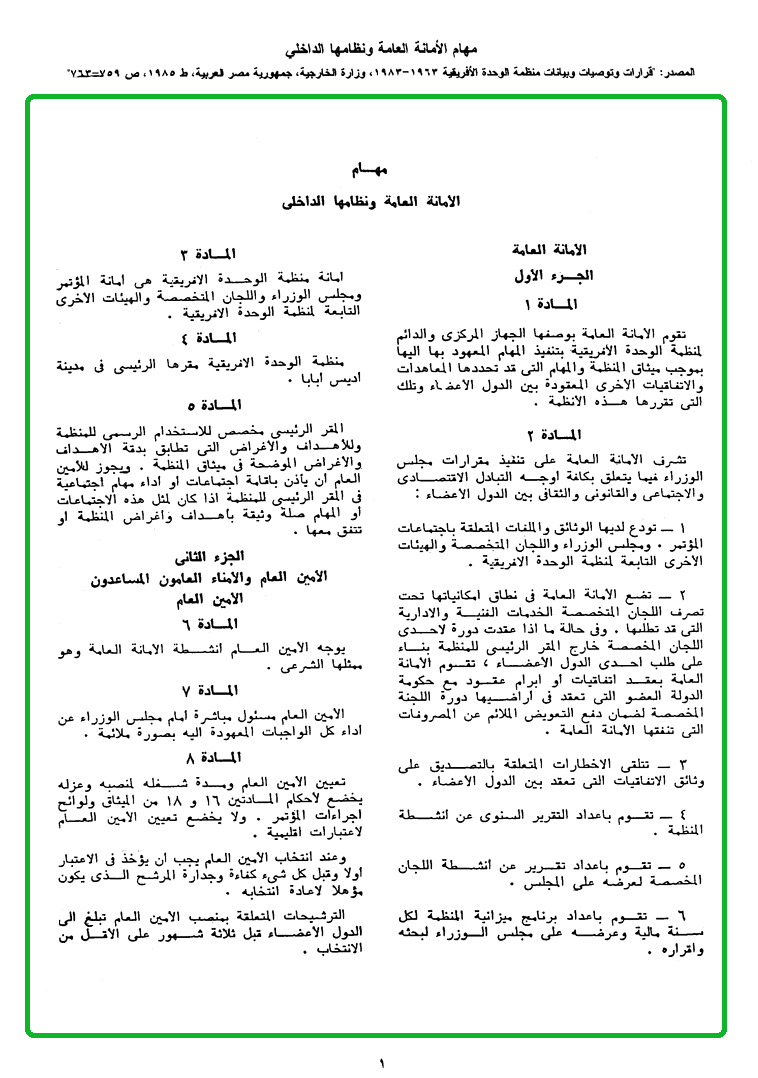 مهام الأمانة العامة ونظامها الداخلي
المصدر: "قرارات وتوصيات وبيانات منظمة الوحدة الأفريقية ١٩٦٣-١٩٨٣، وزارة الخارجية، جمهورية مصر العربية، ط ١٩٨٥، ص ٧٥٩=٧٦٣"
مهـــام
الأمانة العامة ونظامها الداخلى
الأمانة العامة
الجـــزء الأول
المـــادة ١
تقوم الامانة العامة بوصفها الجهاز المركزى والدائم
لمنظمة الوحدة الأفريقية بتنفيذ المهام المعهود بها اليها
بموجب ميثاق المنظمة والمهام التى قد تحددها المعاهدات
والاتفاقيات الأخرى المعقودة بين الدول الأعضاء وتلك
التى تقررها هـــذه الأنظمة .
المـــادة ٢
تشرف الامانة العامة على تنفيذ مقرارات مجلس
الوزراء فيما يتعلق بكافة اوجـــه التبادل الاقتصـــادى
والاجتماعى والقانونى والثقافى بين الدول الاعضاء :
١ ــ تودع لديها الوثائق والملفات المتعلقة باجتماعات
المؤتمر . ومجلس الوزراء واللجان المتخصصة والهيئات
الأخرى التابعة لمنظمة الوحدة الافريقية .
٢ ــ تضع الأمانة العامة فى نطاق امكانياتها تحت
تصرف اللجان المتخصصة الخدمات الفنيـــة والادارية
التى قد تطلبها . وفى حالة ما اذا عقدت دورة لاحـــدى
اللجان المخصصة خارج المقر الرئيسى للمنظمة بنـــاء
على طلب احـــدى الدول الأعضـــاء ، تقـــوم الأمانة
العامة بعقـــد اتفاقيات او ابرام عقـــود مع حكومة
الدولة العضو التى تعقد فى اراضـــيها دورة اللجنة
المخصصة لضمان دفع التعويض الملائم عن المصروفات
التى تنفقها الأمانة العامة .
٣ ــ تتلقى الاخطارات المتعلقة بالتصـــديق على
وثائق الاتفاقيات التى تعقد بين الدول الأعضاء .
٤ ــ تقـــوم باعداد التقرير السنوى عن أنشـــطة
المنظمة .
٥ ــ تقـــوم باعداد تقـــرير عن أنشـــطة اللجان
المخصصة لعرضه على المجلس .
٦ ــ تقـــوم باعداد برنامج ميزانية المنظمة لكل
ســـنة مالية وعرضـــه على مجلس الـــوزراء لبحثه
واقراره .
المـــادة ٣
امانة منظمة الوحـــدة الافريقية هى امانة المؤتمر
ومجلس الوزراء واللجان المتخصصة والهيئات الأخرى
التابعة لمنظمة الوحدة الافريقية .
المـــادة ٤
منظمة الوحدة الأفريقية مقرها الرئيسى فى مدينة
اديس أبابا .
المـــادة ٥
المقر الرئيسى مخصص للاستخدام الرسمى للمنظمة
وللأهـــداف والأغراض التى تطابق بدقة الأهـــداف
والأغراض الموضحة فى ميثاق المنظمة . ويجوز للأمين
العام ان يأذن باقامة اجتماعات او اداء مهام اجتماعية
فى المقر الرئيسى للمنظمة اذا كان لمثل هذه الاجتماعات
أو المهام صلة وثيقة بأهداف وأغراض المنظمة او
تتفق معها .
الجزء الثانى
الأمين العام والأمناء العامون المساعدون
الأمين العام
المـــادة ٦
يوجه الأمين العـــام أنشـــطة الامانة العامة وهو
ممثلها الشرعى .
المـــادة ٧
الأمين العام مسئول مباشرة امام مجلس الوزراء عن
اداء كل الواجبات المعهودة اليه بصورة ملائمة .
المـــادة ٨
تعيين الأمين العام ومـــدة شـــغله لمنصبه وعزله
يخضع لأحكام المـــادتين ١٦ و ١٨ من الميثاق ولوائح
اجراءات المؤتمر . ولا يخضع تعيين الأمين العـــام
لاعتبارات اقليمية .
وعند انتخاب الأمين العام يجب ان يؤخذ فى الاعتبار
اولا وقبل كل شىء كفاءة وجدارة المرشح الـــذى يكون
مؤهلا لاعادة انتخابه .
الترشيحات المتعلقة بمنصب الأمين العام تبلغ الى
الدول الأعضـــاء قبل ثلاثة شـــهور على الأقـــل من
الانتخاب .
١